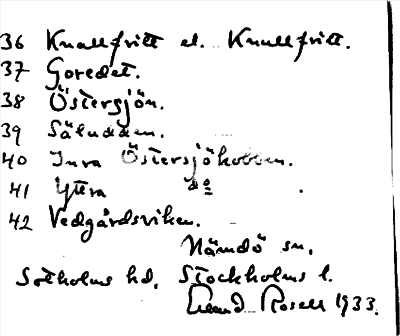 36 Knallfritt el. Knullfritt.
37 Goredet.
38 Östersjön.
39 Säludden.
40 Inra Östersjökobben.
41 Yttra do
42 Vedgårdsviken.
Nämdö sn.
Sotholms hd. Stockholms l.
Rosell 1933.